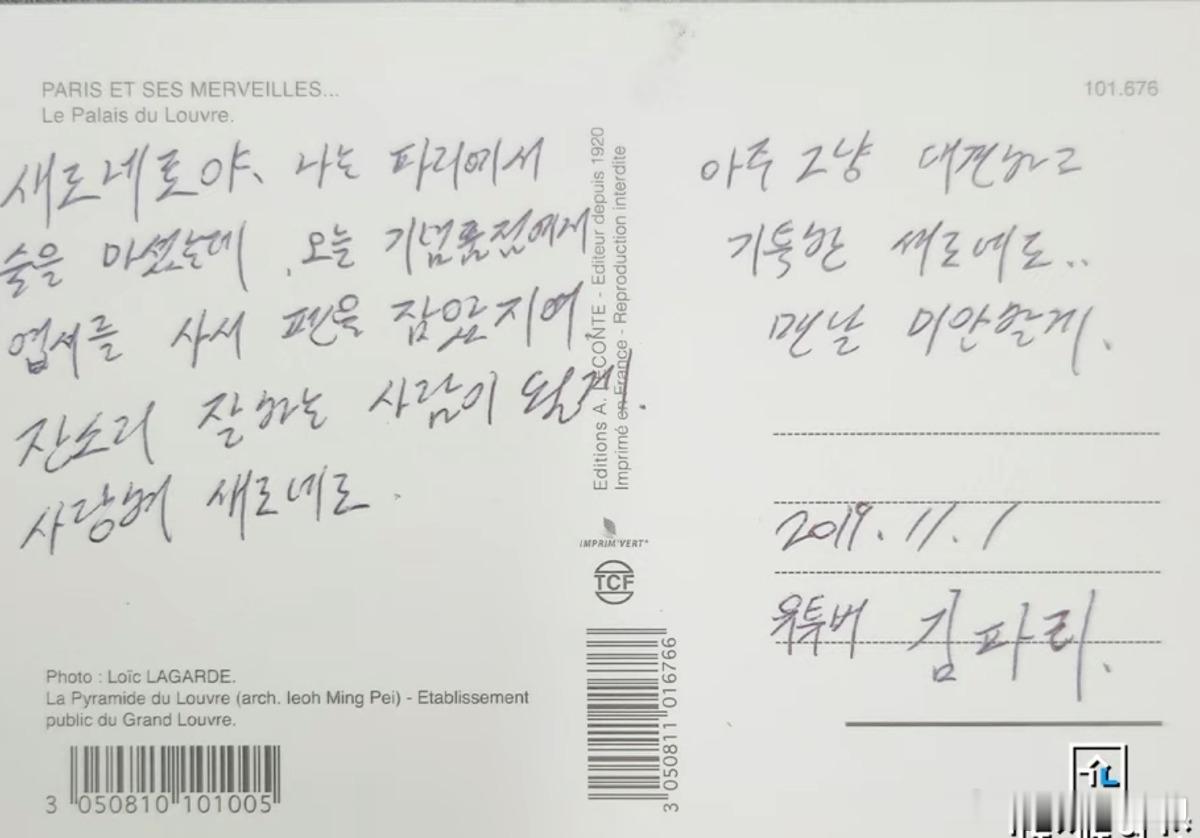 PARIS ET SES MERVEILLES...
Le Palais du Louvre.
101.676
새로네로야, 나는 파리에서
술을 마셨는데, 오늘 기념품점에서
엽서를 사서 펜을 잡았지여
잔소리 잘하는 사람이 될게.
사랑혀 새로네로.
아주 그냥 대견하고
기특한 새로네로..
맨날 미안할게.
2019.11.1
유투버 김파리.
Editions A. LECONTE - Editeur depuis 1920
Imprimé en France - Reproduction interdite
IMPRIM'VERT®
TCF
Photo : Loïc LAGARDE.
La Pyramide du Louvre (arch. Ieoh Ming Pei) - Etablissement
public du Grand Louvre.
3 050810 101005
3 050811 016766